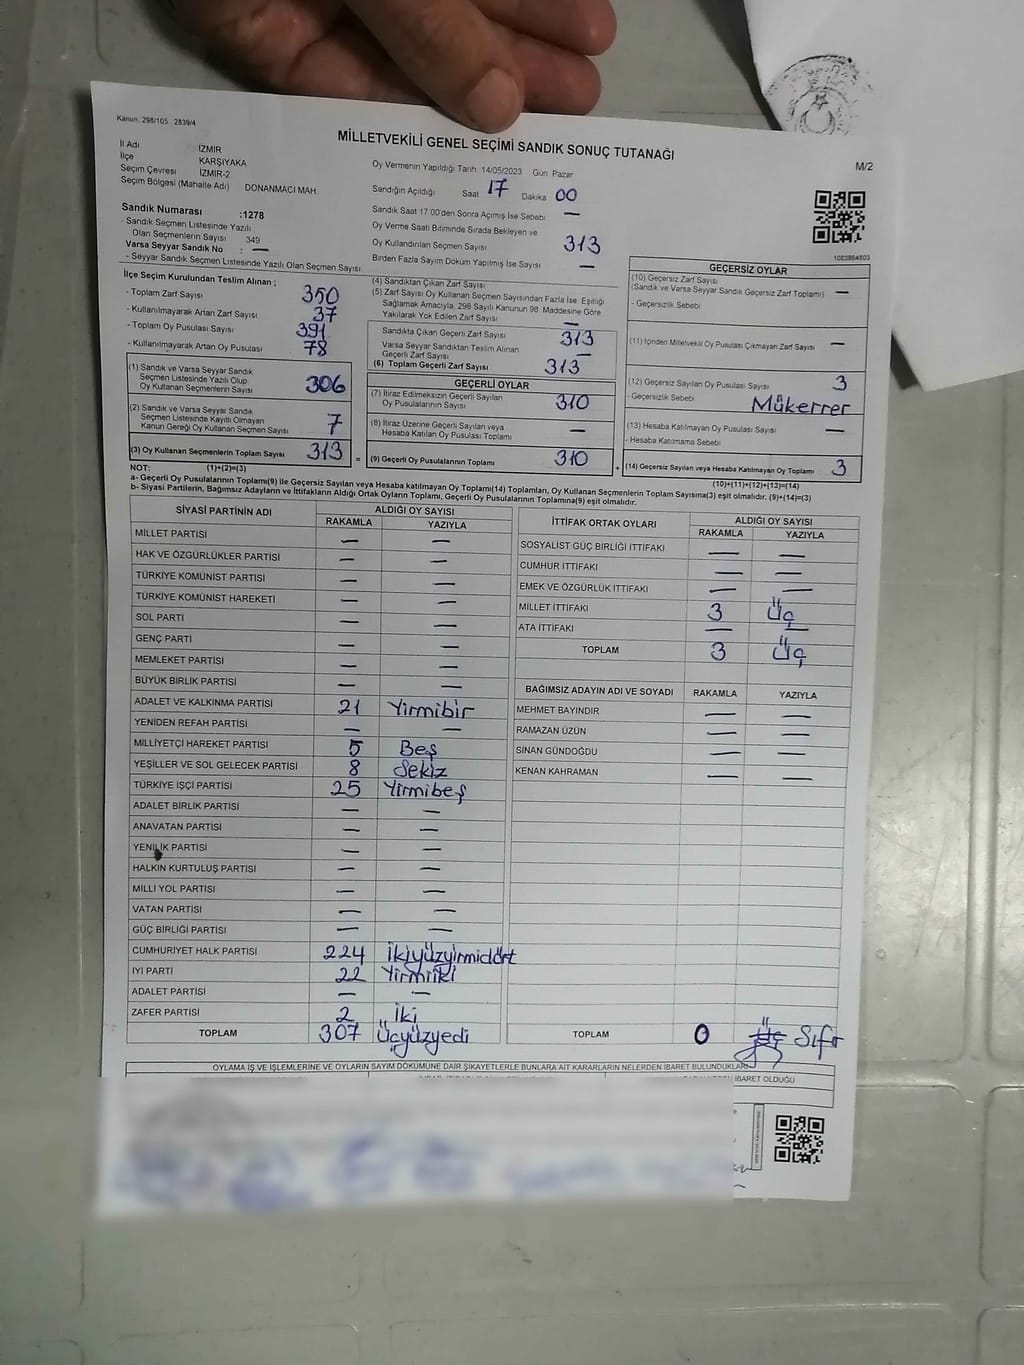 Kanun, 298/105 2839/4
MİLLETVEKİLİ GENEL SEÇİMİ SANDIK SONUÇ TUTANAĞI
M/2
İl Adı İZMİR
İlçe KARŞIYAKA
Seçim Çevresi İZMİR-2
Seçim Bölgesi (Mahalle Adı) DONANMACI MAH.
Sandık Numarası :1278
- Sandık Seçmen Listesinde Yazılı
Olan Seçmenlerin Sayısı 349
Varsa Seyyar Sandık No : —
- Seyyar Sandık Seçmen Listesinde Yazılı Olan Seçmen Sayısı
Oy Vermenin Yapıldığı Tarih 14/05/2023 Gün Pazar
Sandığın Açıldığı Saat 17 Dakika 00
Sandık Saat 17.00'den Sonra Açılmış İse Sebebi —
Oy Verme Saati Bitiminde Sırada Bekleyen ve
Oy Kullandırılan Seçmen Sayısı 313
Birden Fazla Sayım Döküm Yapılmış İse Sayısı —
1083864803
İlçe Seçim Kurulundan Teslim Alınan ;
- Toplam Zarf Sayısı 350
- Kullanılmayarak Artan Zarf Sayısı 37
- Toplam Oy Pusulası Sayısı 391
- Kullanılmayarak Artan Oy Pusulası 78
(1) Sandık ve Varsa Seyyar Sandık
Seçmen Listesinde Yazılı Olup
Oy Kullanan Seçmenlerin Sayısı 306
(2) Sandık ve Varsa Seyyar Sandık
Seçmen Listesinde Kayıtlı Olmayan
Kanun Gereği Oy Kullanan Seçmen Sayısı 7
(3) Oy Kullanan Seçmenlerin Toplam Sayısı 313 =
(4) Sandıktan Çıkan Zarf Sayısı
(5) Zarf Sayısı Oy Kullanan Seçmen Sayısından Fazla İse, Eşitliği
Sağlamak Amacıyla, 298 Sayılı Kanunun 98. Maddesine Göre
Yakılarak Yok Edilen Zarf Sayısı —
Sandıkta Çıkan Geçerli Zarf Sayısı 313
Varsa Seyyar Sandıktan Teslim Alınan
Geçerli Zarf Sayısı —
(6) Toplam Geçerli Zarf Sayısı 313
GEÇERLİ OYLAR
(7) İtiraz Edilmeksizin Geçerli Sayılan
Oy Pusulalarının Sayısı 310
(8) İtiraz Üzerine Geçerli Sayılan veya
Hesaba Katılan Oy Pusulası Toplamı —
(9) Geçerli Oy Pusulalarının Toplamı 310 +
GEÇERSİZ OYLAR
(10) Geçersiz Zarf Sayısı
(Sandık ve Varsa Seyyar Sandık Geçersiz Zarf Toplamı) —
- Geçersizlik Sebebi
(11) İçinden Milletvekili Oy Pusulası Çıkmayan Zarf Sayısı —
(12) Geçersiz Sayılan Oy Pusulası Sayısı 3
- Geçersizlik Sebebi Mükerrer
(13) Hesaba Katılmayan Oy Pusulası Sayısı —
- Hesaba Katılmama Sebebi
(14) Geçersiz Sayılan veya Hesaba Katılmayan Oy Toplamı 3
NOT: (1)+(2)=(3)
(10)+(11)+(12)+(13)=(14)
a- Geçerli Oy Pusulalarının Toplamı(9) ile Geçersiz Sayılan veya Hesaba katılmayan Oy Toplamı(14) Toplamları, Oy Kullanan Seçmenlerin Toplam Sayısına(3) eşit olmalıdır. (9)+(14)=(3)
b- Siyasi Partilerin, Bağımsız Adayların ve İttifakların Aldığı Ortak Oyların Toplamı, Geçerli Oy Pusulalarının Toplamına(9) eşit olmalıdır.
SİYASİ PARTİNİN ADI ALDIĞI OY SAYISI
RAKAMLA YAZIYLA
MİLLET PARTİSİ — —
HAK VE ÖZGÜRLÜKLER PARTİSİ — —
TÜRKİYE KOMÜNİST PARTİSİ — —
TÜRKİYE KOMÜNİST HAREKETİ — —
SOL PARTİ — —
GENÇ PARTİ — —
MEMLEKET PARTİSİ — —
BÜYÜK BİRLİK PARTİSİ — —
ADALET VE KALKINMA PARTİSİ 21 Yirmibir
YENİDEN REFAH PARTİSİ — —
MİLLİYETÇİ HAREKET PARTİSİ 5 Beş
YEŞİLLER VE SOL GELECEK PARTİSİ 8 Sekiz
TÜRKİYE İŞÇİ PARTİSİ 25 Yirmibeş
ADALET BİRLİK PARTİSİ — —
ANAVATAN PARTİSİ — —
YENİLİK PARTİSİ — —
HALKIN KURTULUŞ PARTİSİ — —
MİLLİ YOL PARTİSİ — —
VATAN PARTİSİ — —
GÜÇ BİRLİĞİ PARTİSİ — —
CUMHURİYET HALK PARTİSİ 224 İkiyüzyirmidört
İYİ PARTİ 22 Yirmiiki
ADALET PARTİSİ — —
ZAFER PARTİSİ 2 İki
TOPLAM 307 Üçyüzyedi
İTTİFAK ORTAK OYLARI ALDIĞI OY SAYISI
RAKAMLA YAZIYLA
SOSYALİST GÜÇ BİRLİĞİ İTTİFAKI — —
CUMHUR İTTİFAKI — —
EMEK VE ÖZGÜRLÜK İTTİFAKI — —
MİLLET İTTİFAKI 3 Üç
ATA İTTİFAKI — —
TOPLAM 3 Üç
BAĞIMSIZ ADAYIN ADI VE SOYADI RAKAMLA YAZIYLA
MEHMET BAYINDIR — —
RAMAZAN ÜZÜN — —
SİNAN GÜNDOĞDU — —
KENAN KAHRAMAN — —
TOPLAM 0 Üç Sıfır
OYLAMA İŞ VE İŞLEMLERİNE VE OYLARIN SAYIM DÖKÜMÜNE DAİR ŞİKAYETLERLE BUNLARA AİT KARARLARIN NELERDEN İBARET BULUNDUKLARI
İBARET OLDUĞU